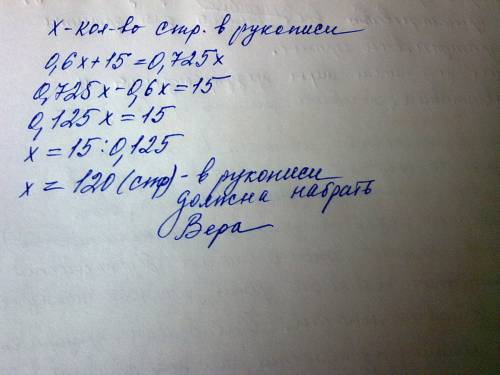 х-кол-во стр. в рукописи
0,6х+15=0,725х
0,725х-0,6х=15
0,125х=15
х=15:0,125
х=120(стр)-в рукописи
должна набрать
Вера